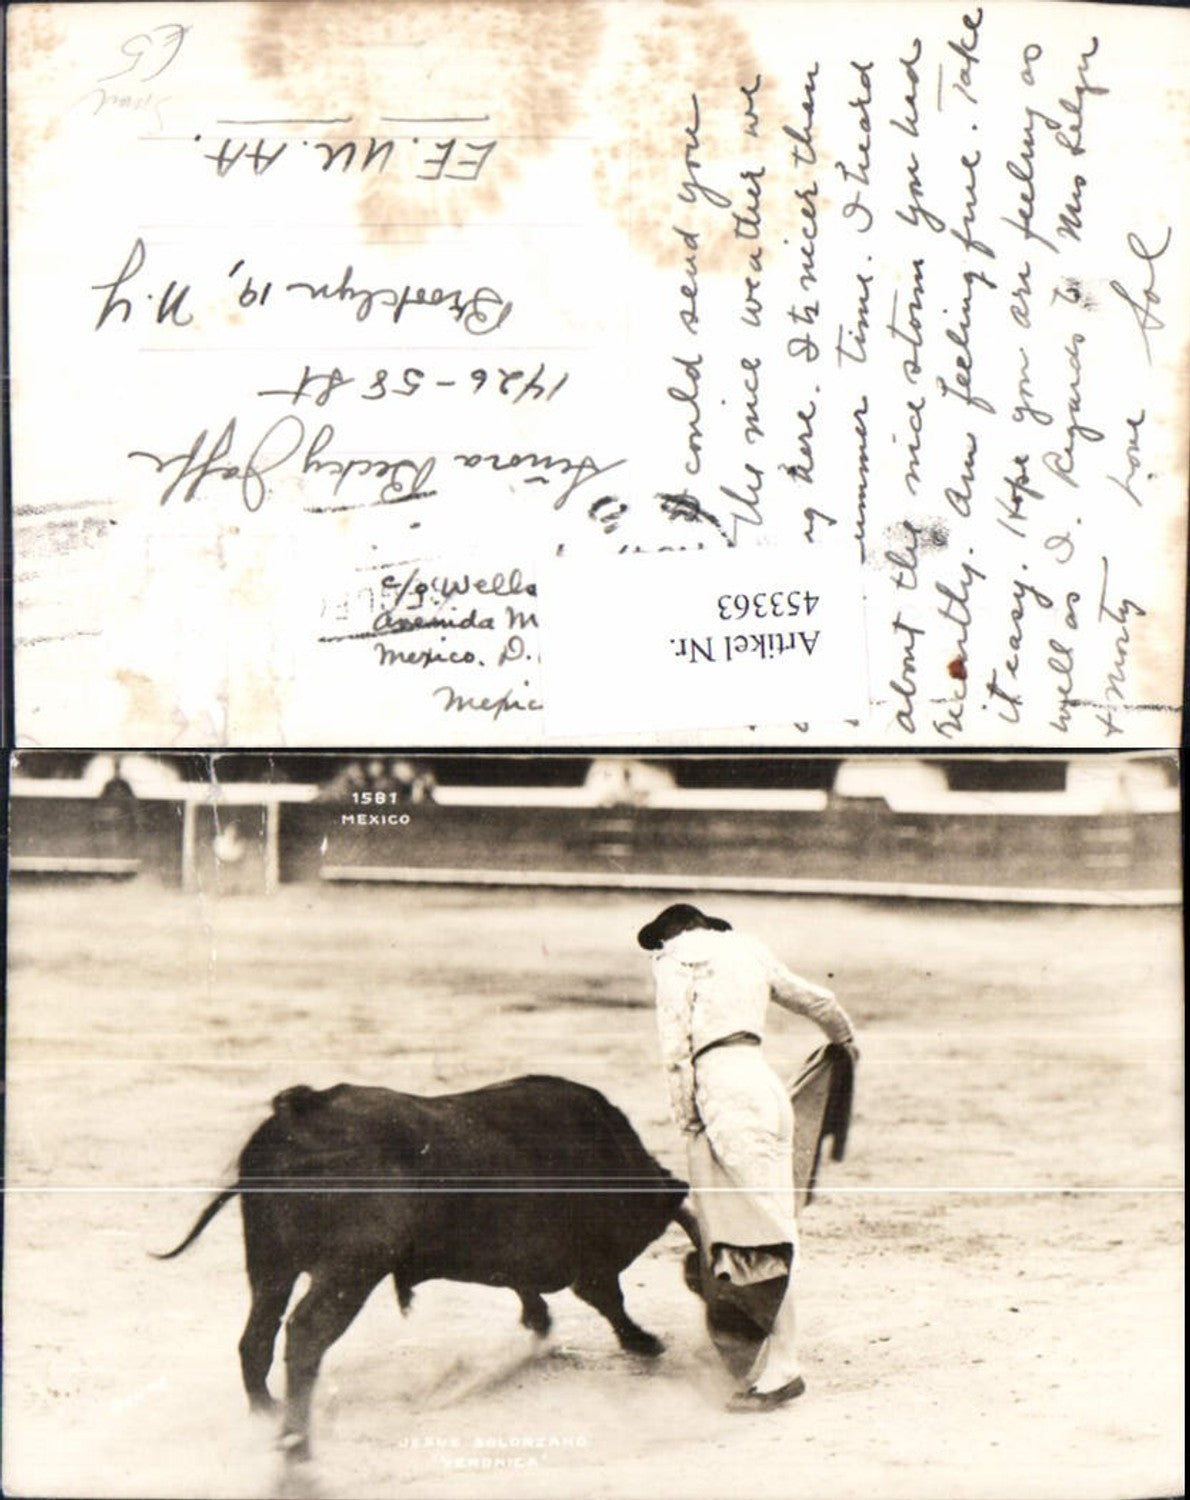 I could send you
the nice weather we
ng here. Its nicer than
ummer time. I heard
about the nice storm you had
recently. Am feeling fine. Take
it easy. Hope you are feeling as
well as I. Regards to Mrs
& Morty
Love
Sol
Señora Becky Jaffe
1426-58 St
Brooklyn 19, N.Y
EE. UU. AA.
£5
c/o Wells
Avenida M
Mexico. D.
Mexic
Artikel Nr.
453363
1581
MEXICO
JESUS SOLORZANO
"VERONICA"